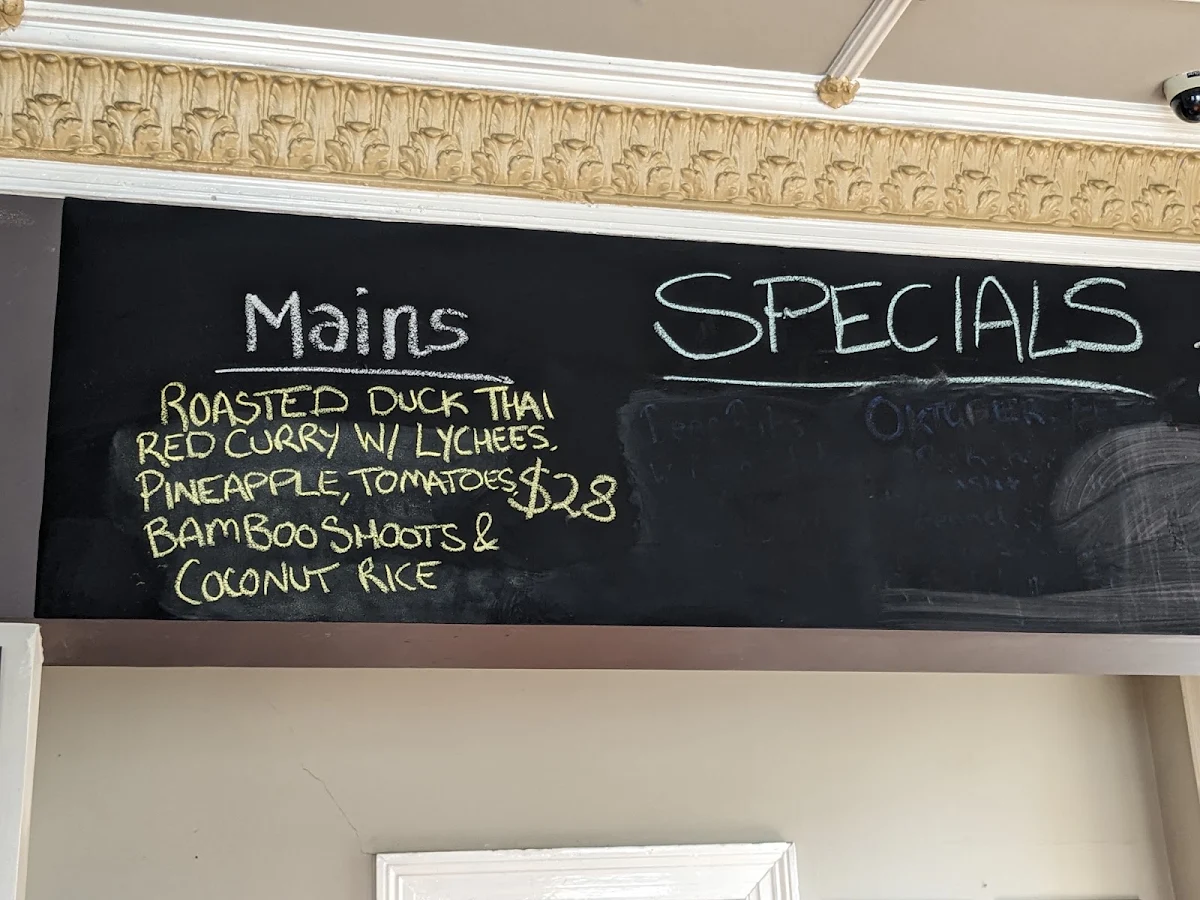 Mains
ROASTED DUCK THAI
RED CURRY W/ LYCHEES,
PINEAPPLE, TOMATOES, $28
BAMBOO SHOOTS &
COCONUT RICE
SPECIALS